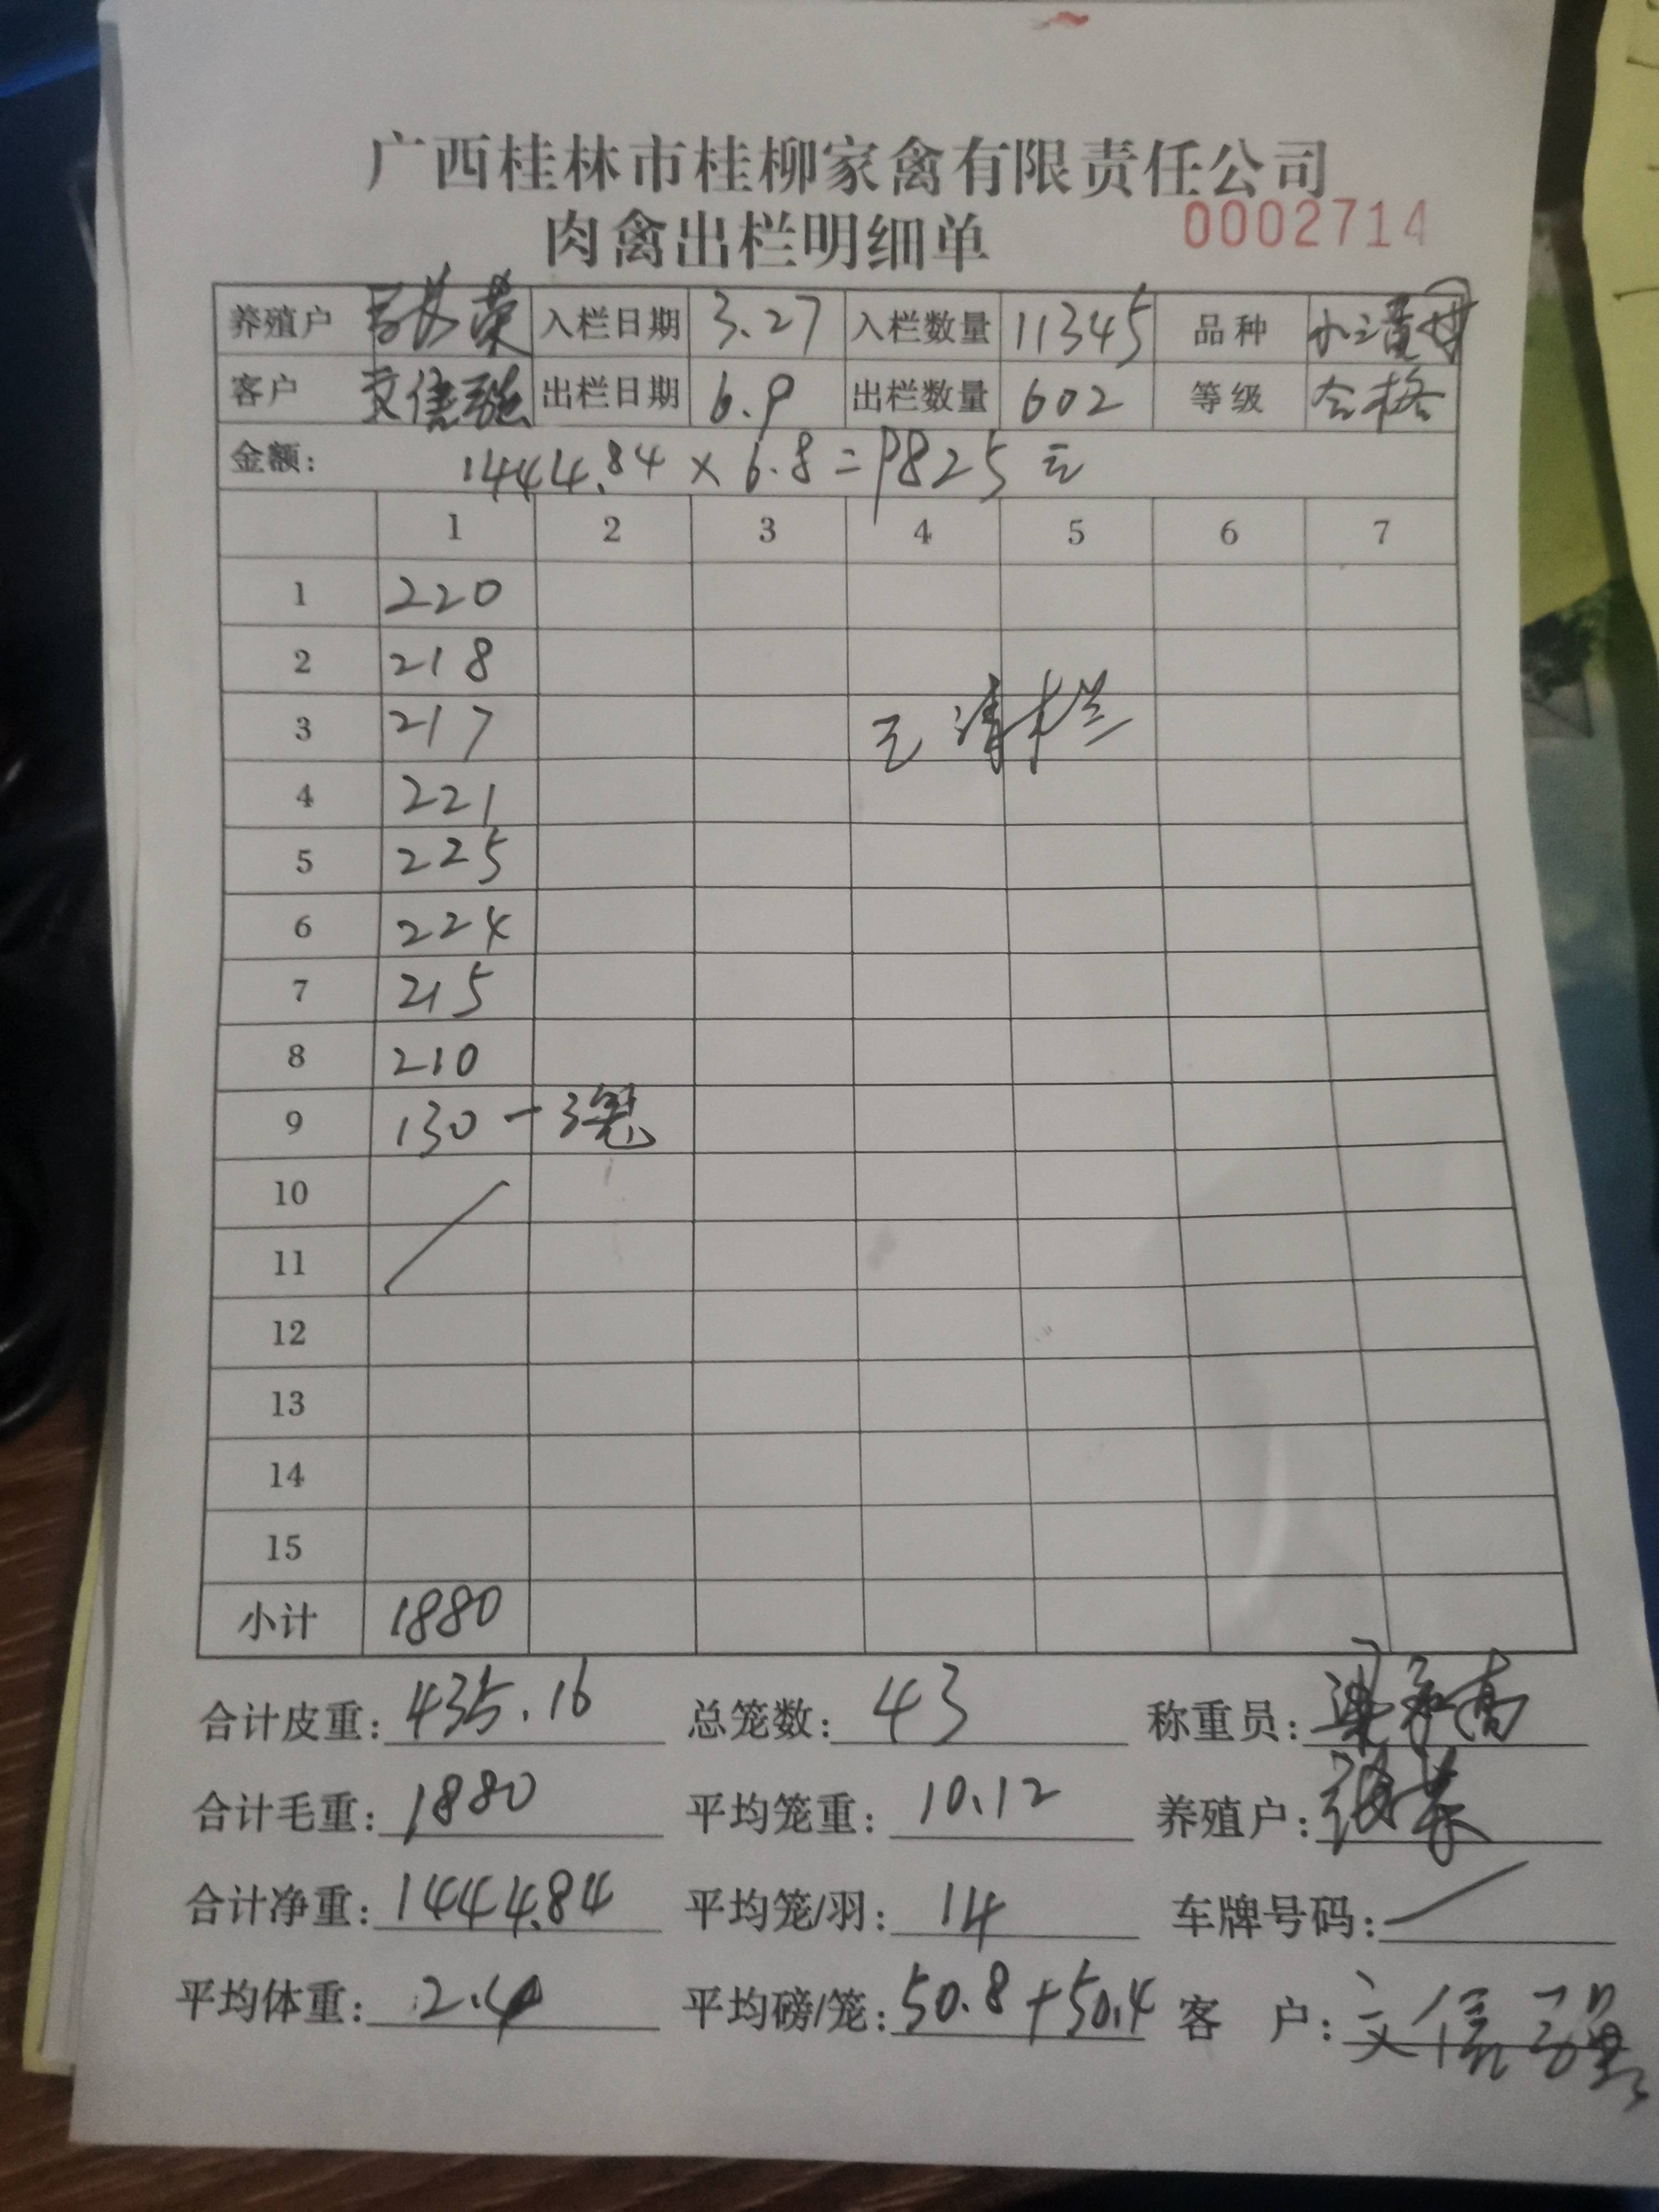 广西桂林市桂柳家禽有限责任公司
肉禽出栏明细单 0002714
养殖户 入栏日期 3.27 入栏数量 11345 品种
客户 文信强 出栏日期 6.9 出栏数量 602 等级 合格
金额: 1444.84 × 6.8 = 9825 元
1 2 3 4 5 6 7
1 220
2 218
3 217 已清栏
4 221
5 225
6 224
7 215
8 210
9 130 — 3笼
10
11
12
13
14
15
小计 1880
合计皮重: 435.16 总笼数: 43 称重员:
合计毛重: 1880 平均笼重: 10.12 养殖户:
合计净重: 1444.84 平均笼/羽: 14 车牌号码:
平均体重: 2.4 平均磅/笼: 50.8+50.4 客户: 文信强